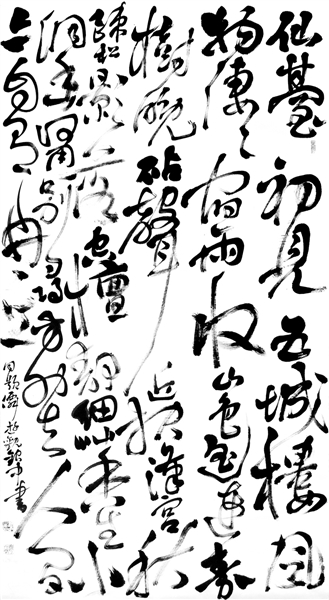 仙臺初見五城樓風
物淒〻宿雨收山色遥連秦
樹晚砧聲近報漢宮秋
疎松影落空壇靜細草香生小
洞幽何用別尋方外去人間
亦自有丹丘
書